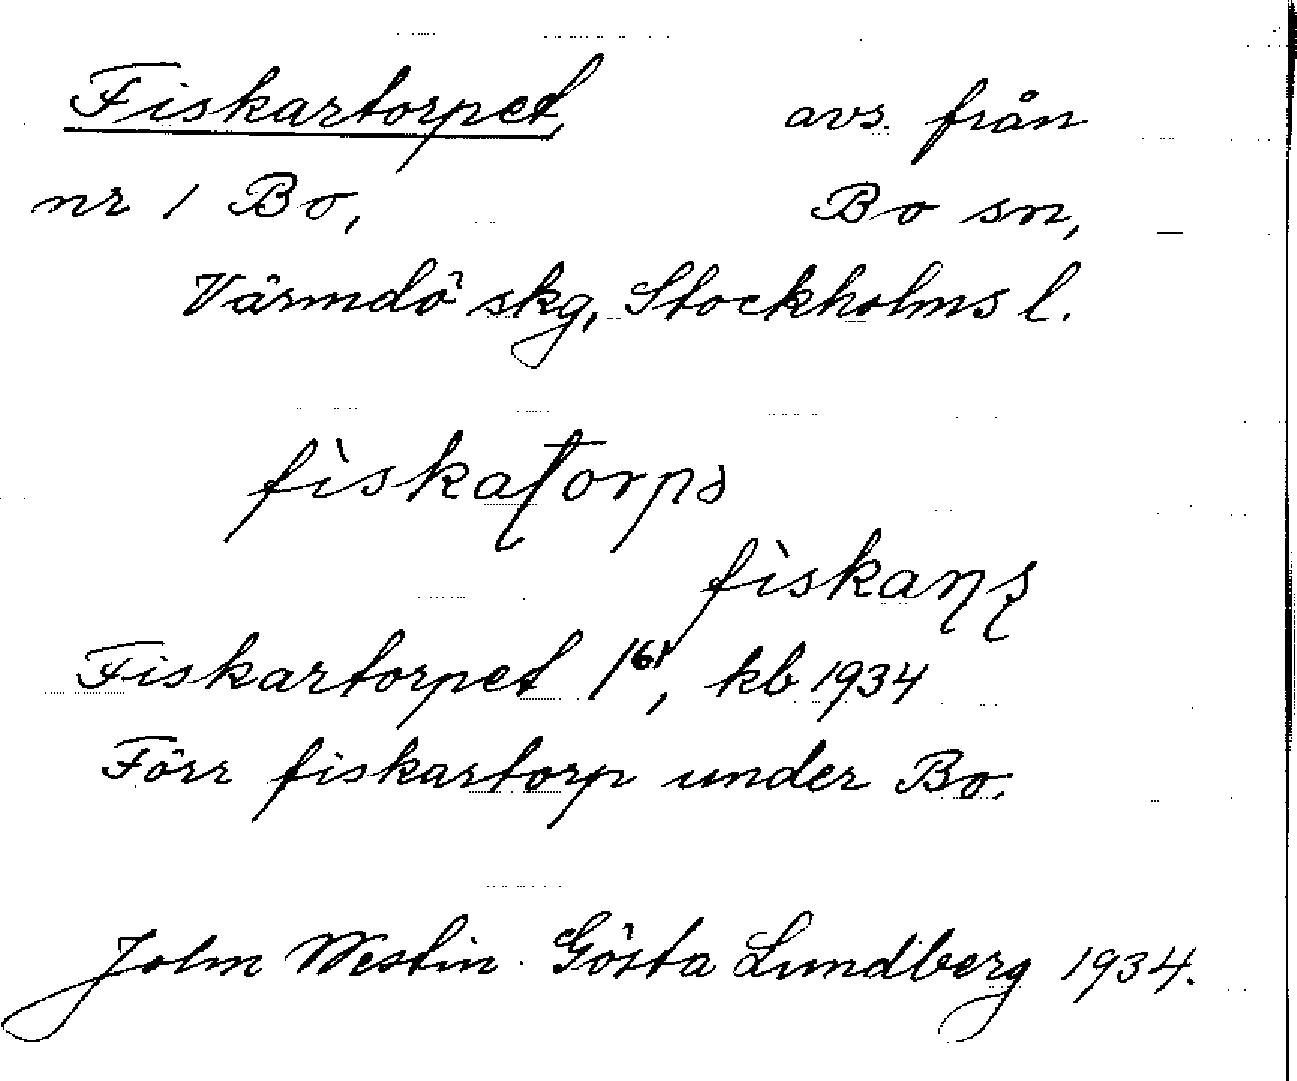 Fiskartorpet, avs. från
nr 1 Bo, Bo sn,
Värmdö skg, Stockholms l.
fìskatorps
fìskaŋs
Fiskartorpet 1⁶¹, kb 1934
Förr fiskartorp under Bo.
John Westin. Gösta Lundberg 1934.